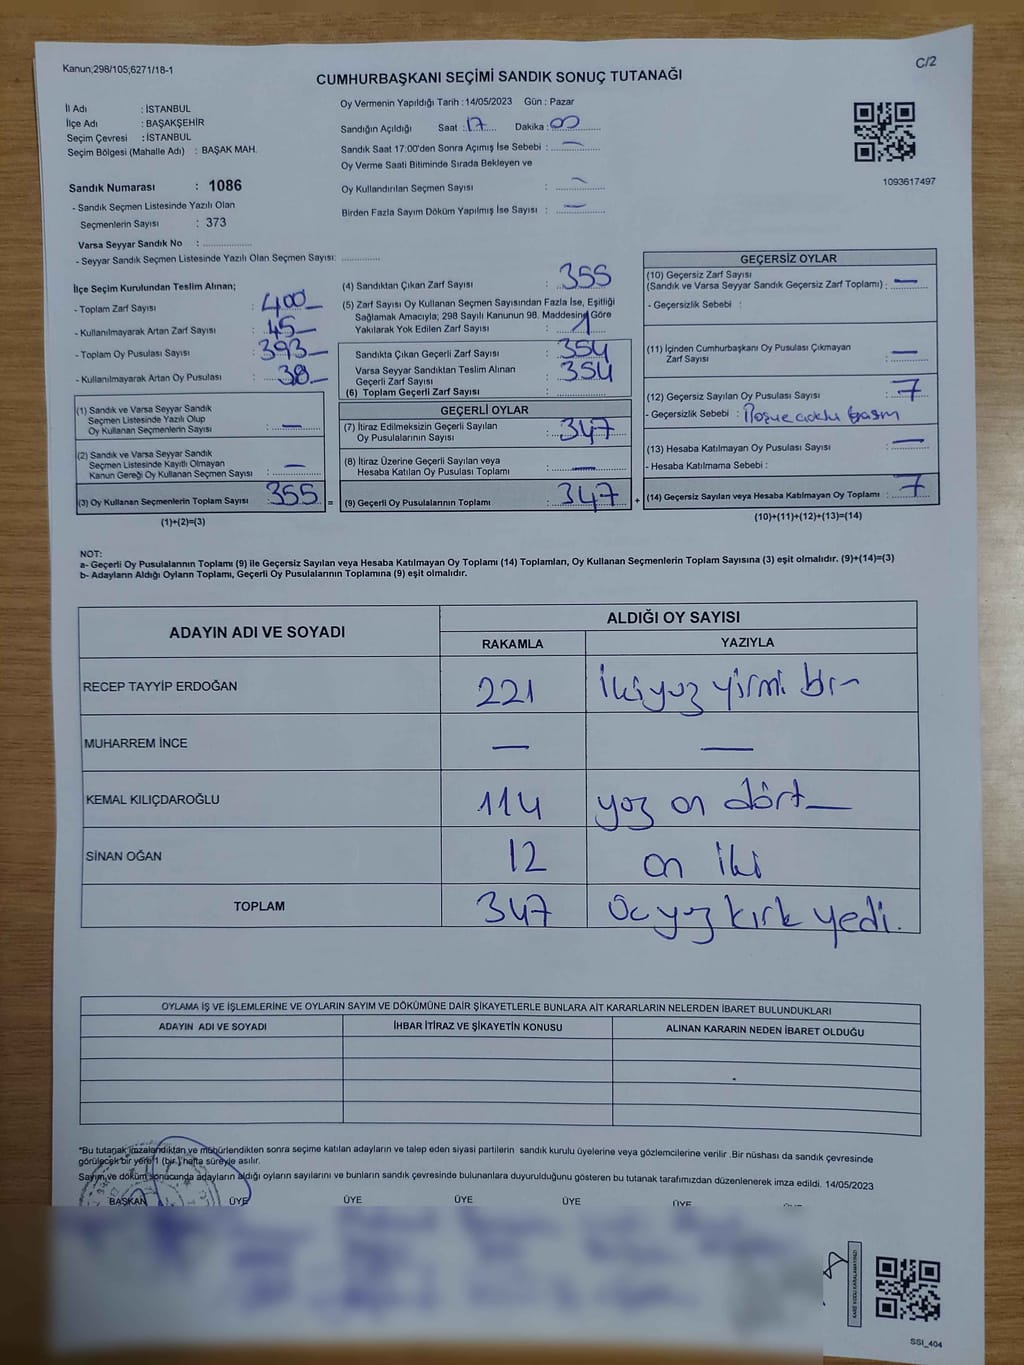 Kanun;298/105;6271/18-1
C/2
CUMHURBAŞKANI SEÇİMİ SANDIK SONUÇ TUTANAĞI
İl Adı : İSTANBUL
İlçe Adı : BAŞAKŞEHİR
Seçim Çevresi : İSTANBUL
Seçim Bölgesi (Mahalle Adı) : BAŞAK MAH.
Sandık Numarası : 1086
- Sandık Seçmen Listesinde Yazılı Olan
Seçmenlerin Sayısı : 373
Varsa Seyyar Sandık No : ..............
- Seyyar Sandık Seçmen Listesinde Yazılı Olan Seçmen Sayısı: ............
Oy Vermenin Yapıldığı Tarih : 14/05/2023 Gün : Pazar
Sandığın Açıldığı Saat : 17 Dakika : 00
Sandık Saat 17:00'den Sonra Açımış İse Sebebi : —
Oy Verme Saati Bitiminde Sırada Bekleyen ve
Oy Kullandırılan Seçmen Sayısı : —
Birden Fazla Sayım Döküm Yapılmış İse Sayısı : —
1093617497
İlçe Seçim Kurulundan Teslim Alınan;
- Toplam Zarf Sayısı : 400—
- Kullanılmayarak Artan Zarf Sayısı : 45—
- Toplam Oy Pusulası Sayısı : 393—
- Kullanılmayarak Artan Oy Pusulası : 38—
(1) Sandık ve Varsa Seyyar Sandık
Seçmen Listesinde Yazılı Olup
Oy Kullanan Seçmenlerin Sayısı : —
(2) Sandık ve Varsa Seyyar Sandık
Seçmen Listesinde Kayıtlı Olmayan
Kanun Gereği Oy Kullanan Seçmen Sayısı : —
(3) Oy Kullanan Seçmenlerin Toplam Sayısı : 355 =
(1)+(2)=(3)
(4) Sandıktan Çıkan Zarf Sayısı : 355
(5) Zarf Sayısı Oy Kullanan Seçmen Sayısından Fazla İse, Eşitliği
Sağlamak Amacıyla; 298 Sayılı Kanunun 98. Maddesine Göre
Yakılarak Yok Edilen Zarf Sayısı : 1
Sandıkta Çıkan Geçerli Zarf Sayısı : 354
Varsa Seyyar Sandıktan Teslim Alınan
Geçerli Zarf Sayısı : 354
(6) Toplam Geçerli Zarf Sayısı : ..............
GEÇERLİ OYLAR
(7) İtiraz Edilmeksizin Geçerli Sayılan
Oy Pusulalarının Sayısı : 347
(8) İtiraz Üzerine Geçerli Sayılan veya
Hesaba Katılan Oy Pusulası Toplamı : —
(9) Geçerli Oy Pusulalarının Toplamı : 347 +
GEÇERSİZ OYLAR
(10) Geçersiz Zarf Sayısı
(Sandık ve Varsa Seyyar Sandık Geçersiz Zarf Toplamı) : —
- Geçersizlik Sebebi :
(11) İçinden Cumhurbaşkanı Oy Pusulası Çıkmayan
Zarf Sayısı : —
(12) Geçersiz Sayılan Oy Pusulası Sayısı : 7
- Geçersizlik Sebebi :
(13) Hesaba Katılmayan Oy Pusulası Sayısı : —
- Hesaba Katılmama Sebebi :
(14) Geçersiz Sayılan veya Hesaba Katılmayan Oy Toplamı : 7
(10)+(11)+(12)+(13)=(14)
NOT:
a- Geçerli Oy Pusulalarının Toplamı (9) ile Geçersiz Sayılan veya Hesaba Katılmayan Oy Toplamı (14) Toplamları, Oy Kullanan Seçmenlerin Toplam Sayısına (3) eşit olmalıdır. (9)+(14)=(3)
b- Adayların Aldığı Oyların Toplamı, Geçerli Oy Pusulalarının Toplamına (9) eşit olmalıdır.
ADAYIN ADI VE SOYADI ALDIĞI OY SAYISI
RAKAMLA YAZIYLA
RECEP TAYYİP ERDOĞAN 221 ikiyüz yirmi bir
MUHARREM İNCE — —
KEMAL KILIÇDAROĞLU 114 yüz on dört—
SİNAN OĞAN 12 on iki
TOPLAM 347 Üç yüz kırk yedi.
OYLAMA İŞ VE İŞLEMLERİNE VE OYLARIN SAYIM VE DÖKÜMÜNE DAİR ŞİKAYETLERLE BUNLARA AİT KARARLARIN NELERDEN İBARET BULUNDUKLARI
ADAYIN ADI VE SOYADI İHBAR İTİRAZ VE ŞİKAYETİN KONUSU ALINAN KARARIN NEDEN İBARET OLDUĞU
*Bu tutanak imzalandıktan ve mühürlendikten sonra seçime katılan adayların ve talep eden siyasi partilerin sandık kurulu üyelerine veya gözlemcilerine verilir .Bir nüshası da sandık çevresinde
görülecek bir yere 1 (bir ) hafta süreyle asılır.
Sayım ve döküm sonucunda adayların aldığı oyların sayılarını ve bunların sandık çevresinde bulunanlara duyurulduğunu gösteren bu tutanak tarafımızdan düzenlenerek imza edildi. 14/05/2023
BAŞKAN ÜYE ÜYE ÜYE ÜYE ÜYE
SSI_404